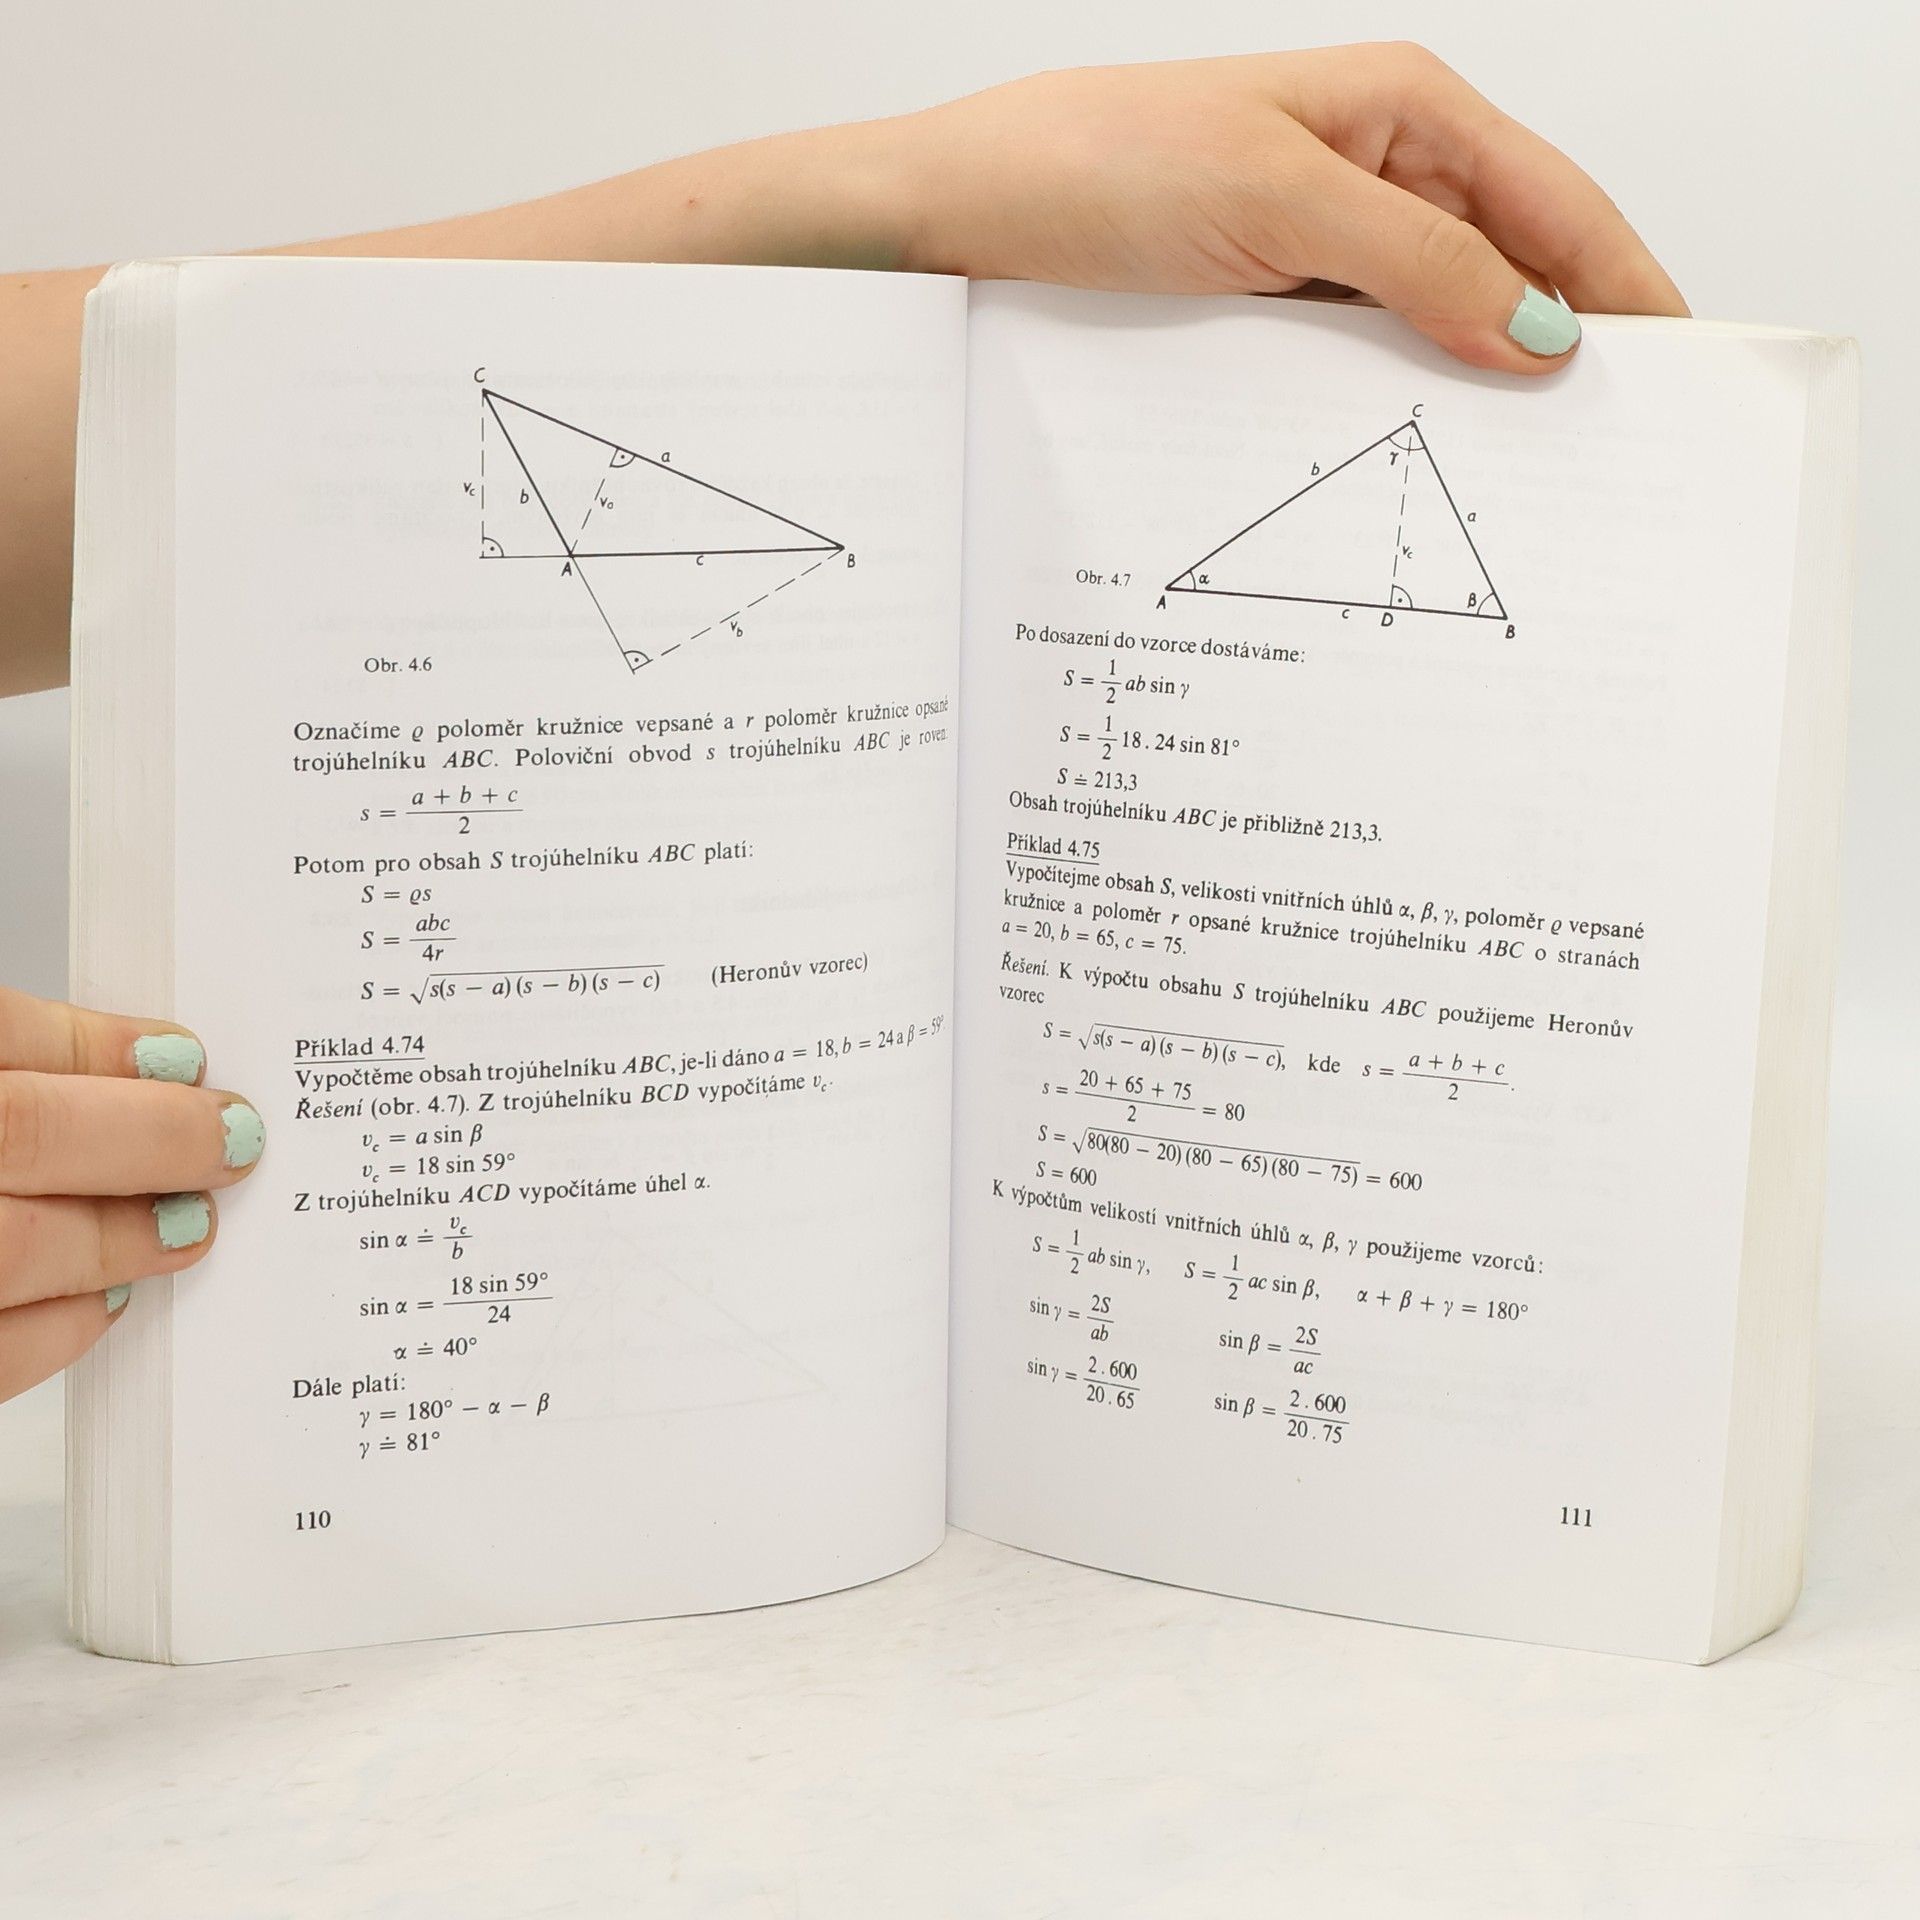 C
a
v_c
b
v_a
A
c
B
v_b
Obr. 4.6
Označíme ϱ poloměr kružnice vepsané a r poloměr kružnice opsané
trojúhelníku ABC. Poloviční obvod s trojúhelníku ABC je roven:
s = \frac{a + b + c}{2}
Potom pro obsah S trojúhelníku ABC platí:
S = ϱs
S = \frac{abc}{4r}
S = √(s(s − a)(s − b)(s − c)) (Heronův vzorec)
Příklad 4.74
Vypočtěme obsah trojúhelníku ABC, je-li dáno a = 18, b = 24 a β = 59°.
Řešení (obr. 4.7). Z trojúhelníku BCD vypočítáme v_c.
v_c = a sin β
v_c = 18 sin 59°
Z trojúhelníku ACD vypočítáme úhel α.
sin α ≐ \frac{v_c}{b}
sin α = \frac{18 sin 59°}{24}
α ≐ 40°
Dále platí:
γ = 180° − α − β
γ ≐ 81°
110
C
γ
b
a
v_c
Obr. 4.7
α
β
A
c
D
B
Po dosazení do vzorce dostáváme:
S = \frac{1}{2} ab sin γ
S = \frac{1}{2} 18 . 24 sin 81°
S ≐ 213,3
Obsah trojúhelníku ABC je přibližně 213,3.
Příklad 4.75
Vypočítejme obsah S, velikosti vnitřních úhlů α, β, γ, poloměr ϱ vepsané
kružnice a poloměr r opsané kružnice trojúhelníku ABC o stranách
a = 20, b = 65, c = 75.
Řešení. K výpočtu obsahu S trojúhelníku ABC použijeme Heronův
vzorec
S = √(s(s − a)(s − b)(s − c)), kde s = \frac{a + b + c}{2}.
s = \frac{20 + 65 + 75}{2} = 80
S = √(80(80 − 20)(80 − 65)(80 − 75)) = 600
S = 600
K výpočtům velikostí vnitřních úhlů α, β, γ použijeme vzorců:
S = \frac{1}{2} ab sin γ, S = \frac{1}{2} ac sin β, α + β + γ = 180°
sin γ = \frac{2S}{ab} sin β = \frac{2S}{ac}
sin γ = \frac{2 . 600}{20 . 65} sin β = \frac{2 . 600}{20 . 75}
111